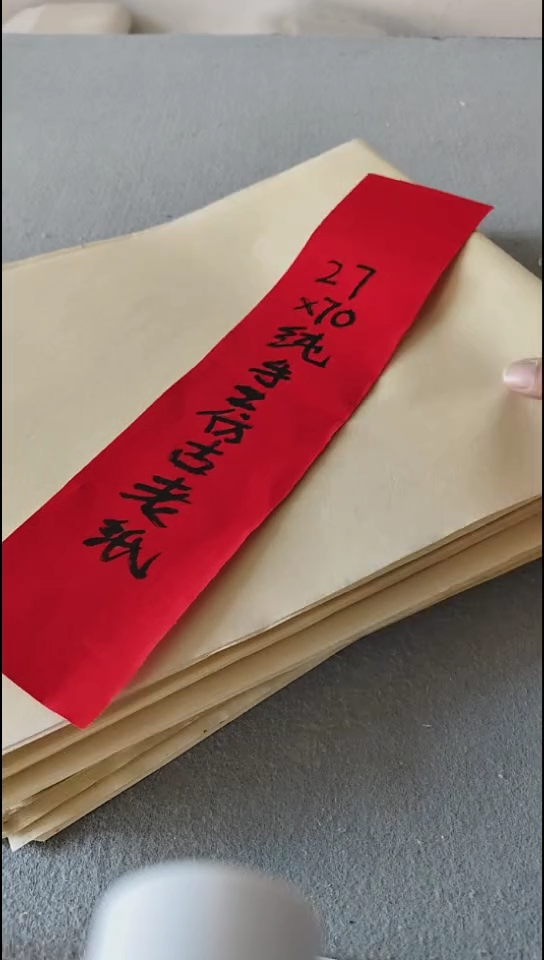 27
×70
纯手工仿古老纸